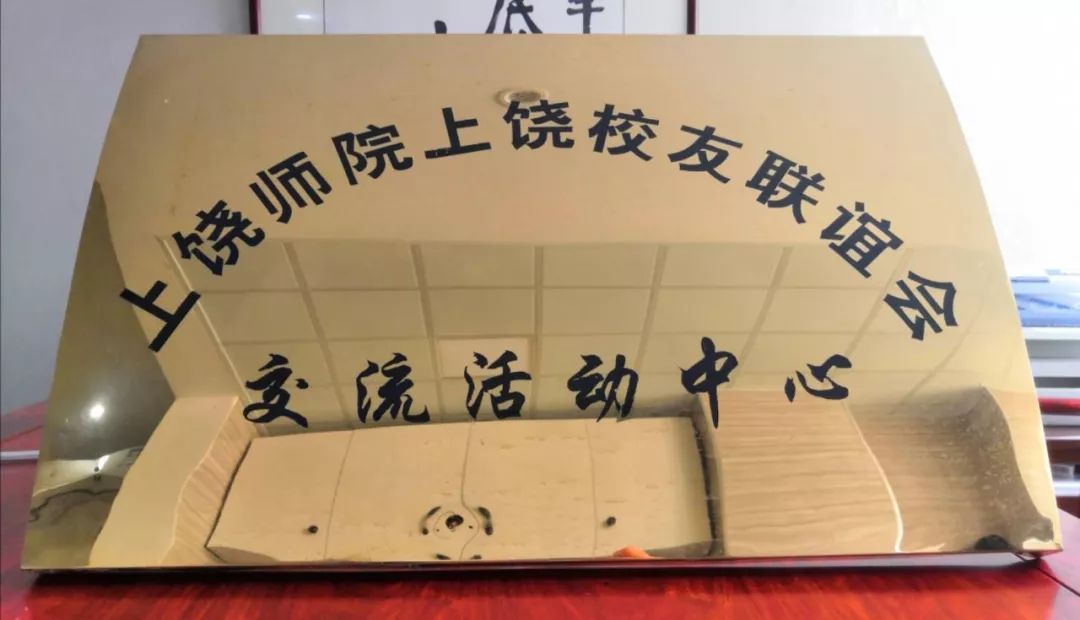 上饶师院上饶校友联谊会
交流活动中心